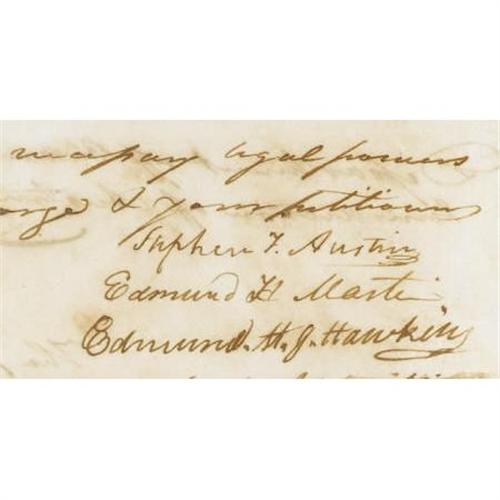 necessary legal powers
& your petitioners
Stephen F. Austin
Edmund H Martin
Edmund. H. J. Hawkins